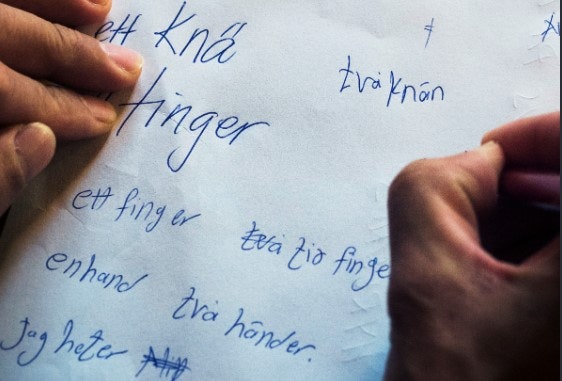 ett knä
två knän
finger
ett finger
två tio finge
en hand
två händer.
Jag heter